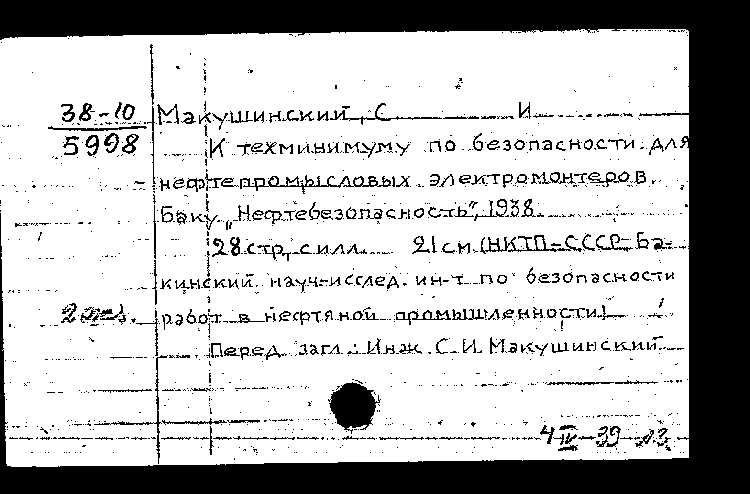 38-10 Макушинский, С И
5998
К техминимуму по безопасности для
нефтепромысловых электромонтеров.
Баку, „Нефтебезопасность", 1938.
28 стр, с илл. 21 см (НКТП-СССР-Ба-
кинский науч-исслед. ин-т по безопасности
2 экз. работ в нефтяной промышленности)
Перед загл.: Инж. С.И. Макушинский.
4 IV-39